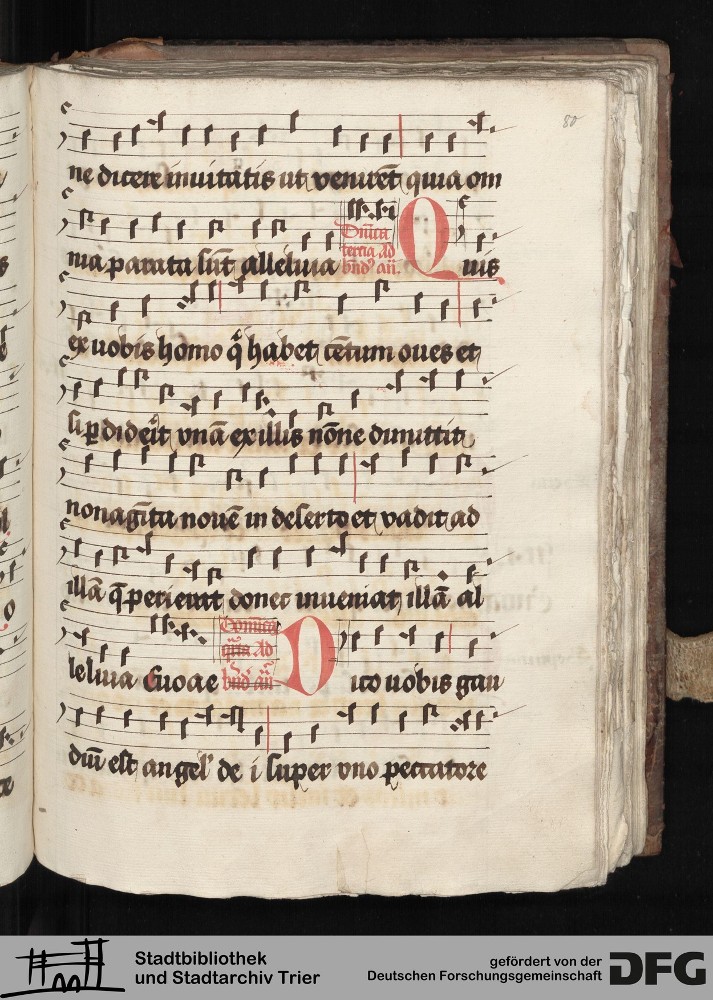 80
ne dicere inuitatis ut venirēt quia om
nia parata sūt alleluia Dn̄ica
tercia ad
bn̄d' an̄. Quis
ex uobis homo q̇ habet centum oues et
si ꝑdiderit vnā ex illis nōne dimittit
nonagīta nouē in deserto et vadit ad
illā q̄ perierat donec inueniat illā al
leluia Euoae Dominica
ad
bn̄d an̄ Dico uobis gau
diū est angel' de i super vno peccatore
Stadtbibliothek
und Stadtarchiv Trier
gefördert von der
Deutschen Forschungsgemeinschaft DFG